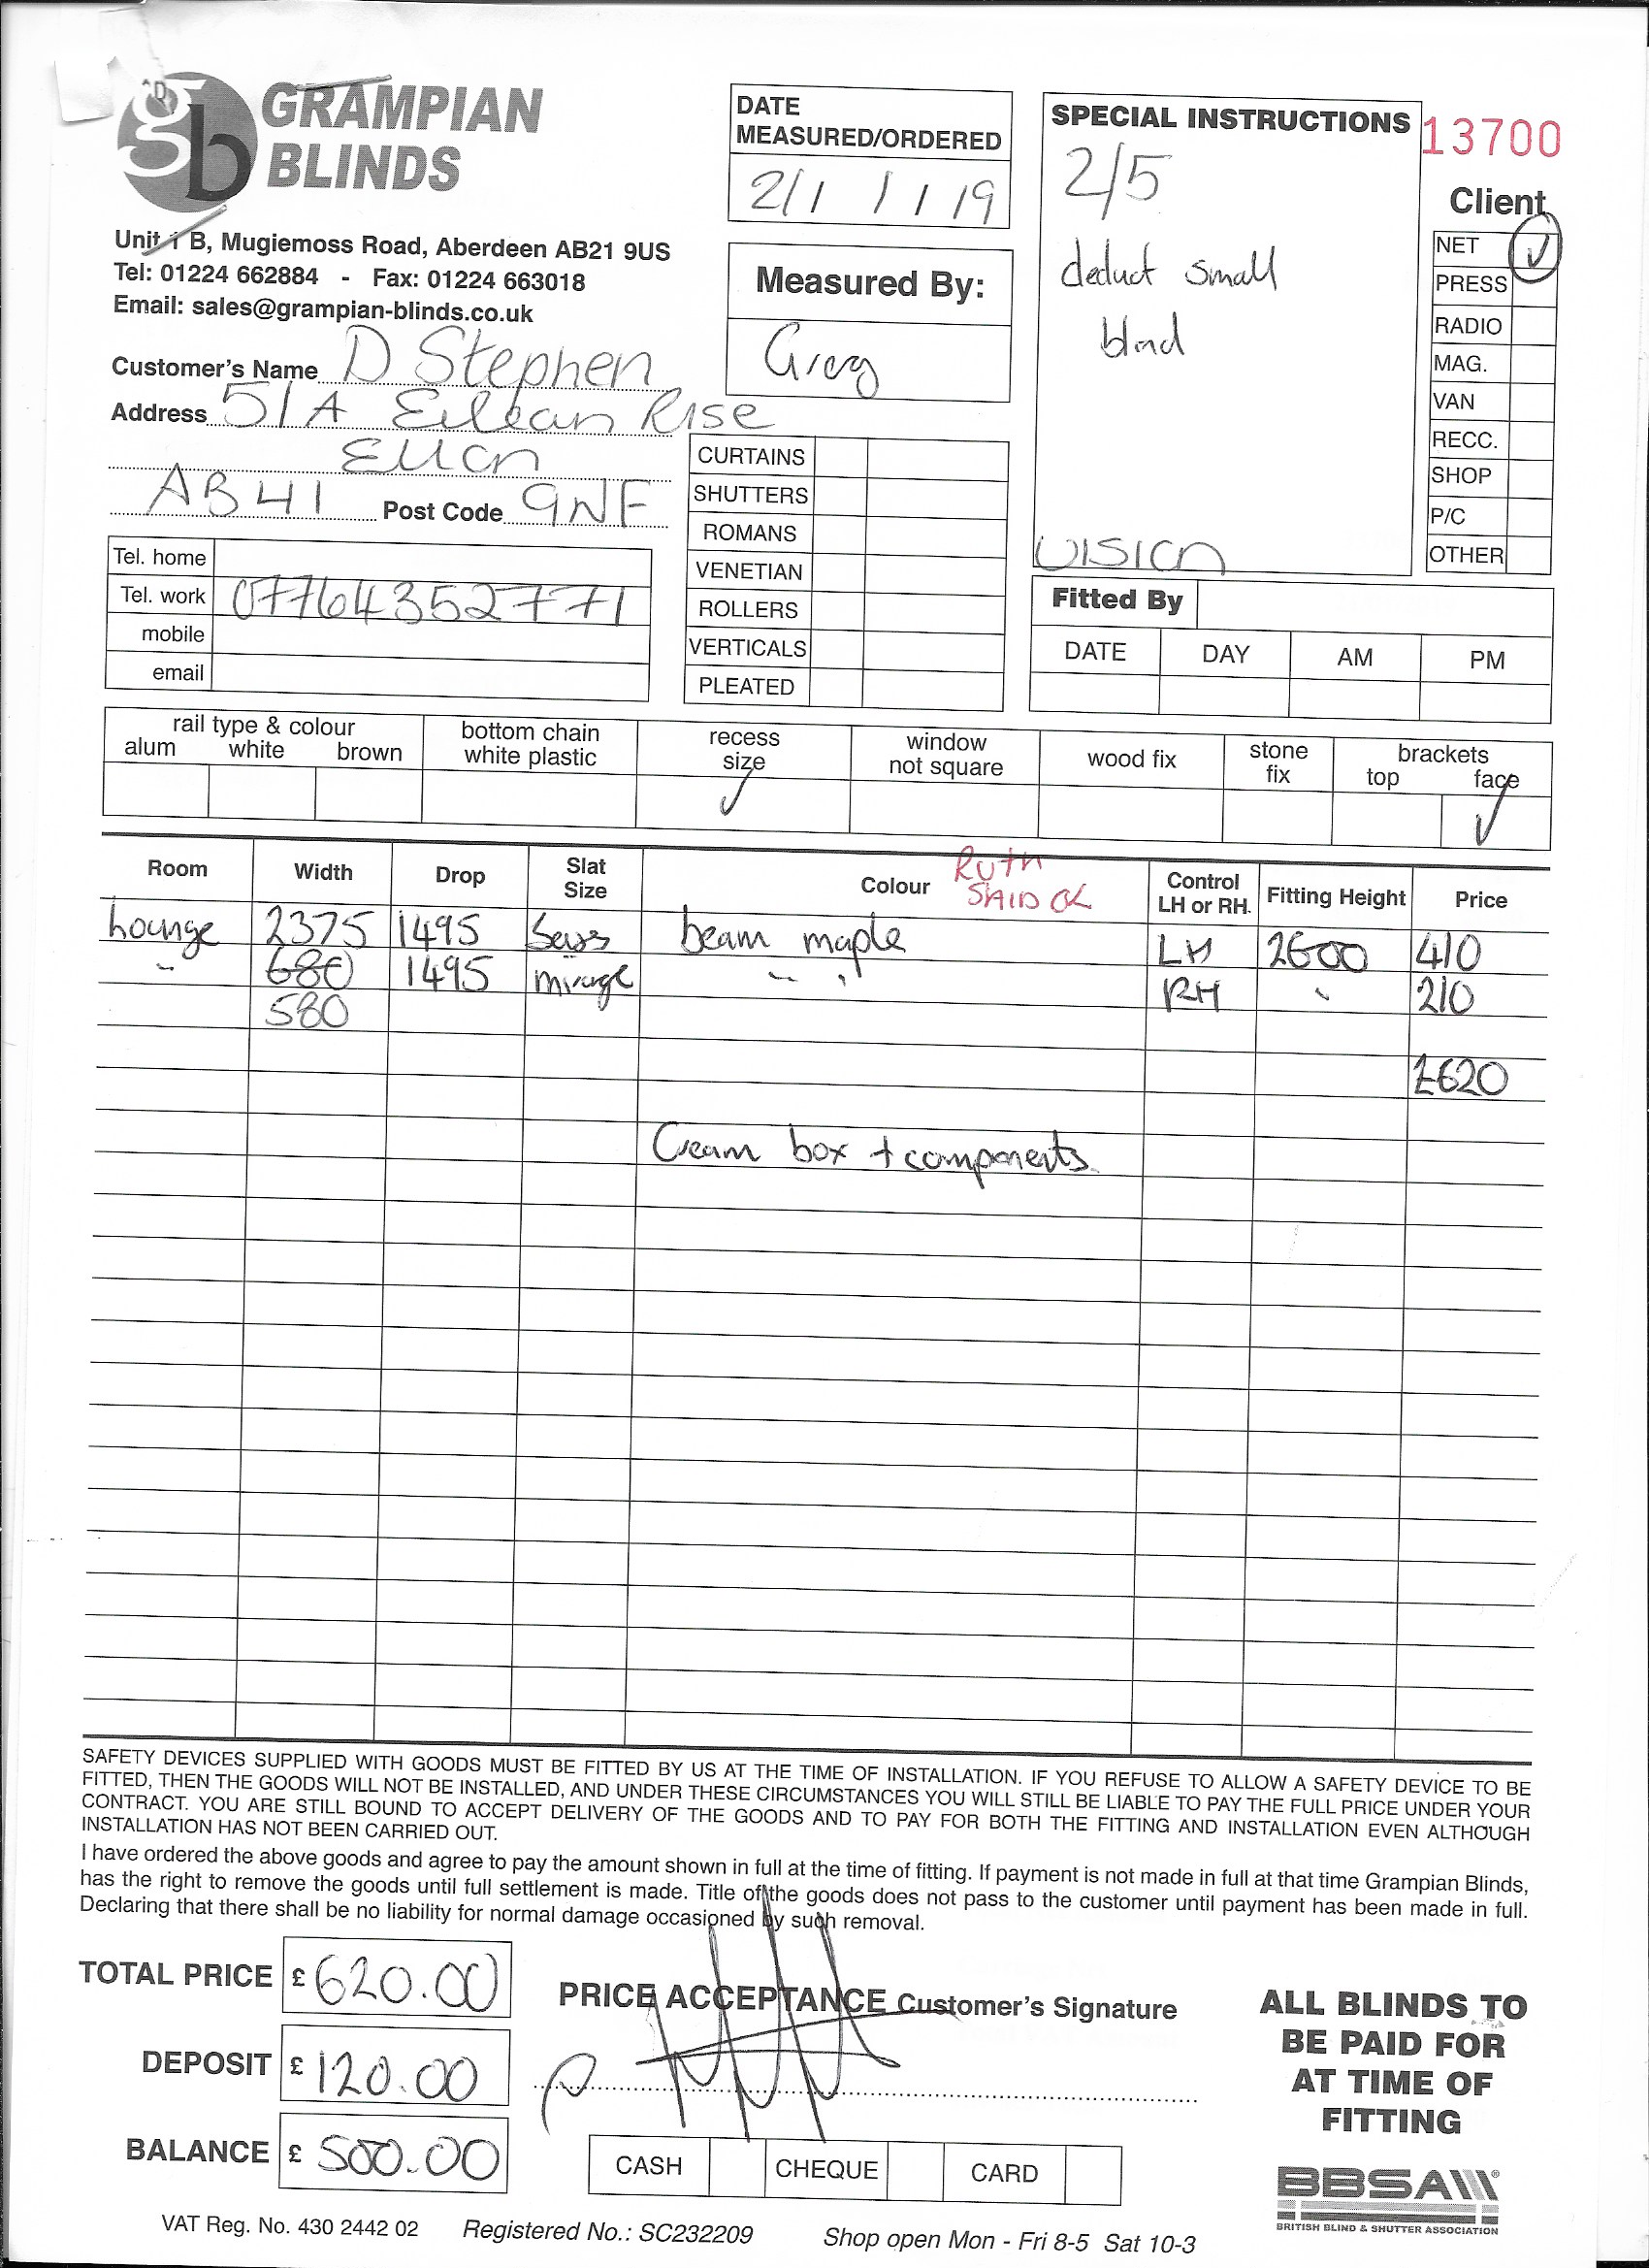 GRAMPIAN
BLINDS
gb
Unit 1 B, Mugiemoss Road, Aberdeen AB21 9US
Tel: 01224 662884 - Fax: 01224 663018
Email: sales@grampian-blinds.co.uk
DATE
MEASURED/ORDERED
2/1 / 1 / 19
Measured By:
Greg
SPECIAL INSTRUCTIONS
2/5
deduct small
blind
VISION
13700
Client
NET ✓
PRESS
RADIO
MAG.
VAN
RECC.
SHOP
P/C
OTHER
Customer's Name D Stephen
Address 51A Eilean Rise
Ellon
AB41 Post Code 9NF
Tel. home
Tel. work 07764352771
mobile
email
CURTAINS
SHUTTERS
ROMANS
VENETIAN
ROLLERS
VERTICALS
PLEATED
Fitted By
DATE DAY AM PM
rail type & colour
alum white brown
bottom chain
white plastic
recess
size ✓
window
not square
wood fix
stone
fix
brackets
top face ✓
Room Width Drop Slat Size Colour Control LH or RH. Fitting Height Price
RUTH
SAID OK
Lounge 2375 1495 beam maple LH 2600 410
" 680 1495 mirage " " RH " 210
580
£620
Cream box + components
SAFETY DEVICES SUPPLIED WITH GOODS MUST BE FITTED BY US AT THE TIME OF INSTALLATION. IF YOU REFUSE TO ALLOW A SAFETY DEVICE TO BE
FITTED, THEN THE GOODS WILL NOT BE INSTALLED, AND UNDER THESE CIRCUMSTANCES YOU WILL STILL BE LIABLE TO PAY THE FULL PRICE UNDER YOUR
CONTRACT. YOU ARE STILL BOUND TO ACCEPT DELIVERY OF THE GOODS AND TO PAY FOR BOTH THE FITTING AND INSTALLATION EVEN ALTHOUGH
INSTALLATION HAS NOT BEEN CARRIED OUT.
I have ordered the above goods and agree to pay the amount shown in full at the time of fitting. If payment is not made in full at that time Grampian Blinds,
has the right to remove the goods until full settlement is made. Title of the goods does not pass to the customer until payment has been made in full.
Declaring that there shall be no liability for normal damage occasioned by such removal.
TOTAL PRICE £ 620.00
DEPOSIT £ 120.00
BALANCE £ 500.00
PRICE ACCEPTANCE Customer's Signature
CASH CHEQUE CARD
ALL BLINDS TO
BE PAID FOR
AT TIME OF
FITTING
BBSA
BRITISH BLIND & SHUTTER ASSOCIATION
VAT Reg. No. 430 2442 02 Registered No.: SC232209 Shop open Mon - Fri 8-5 Sat 10-3